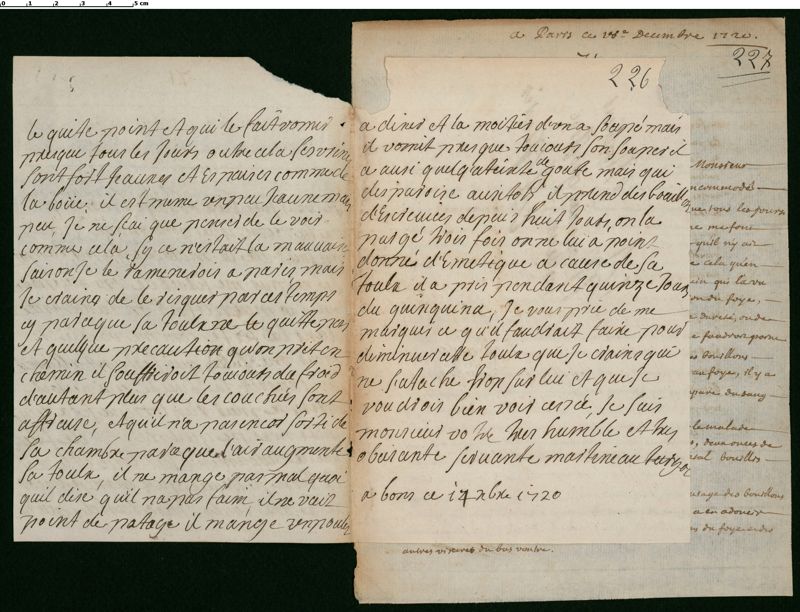 le quite point et qui le fait vomir
presque tous les jours outre cela ses urines
sont fort jaunes et espaises comme de
la boüe, il est mesme un peu jaune mais
peu, je ne scai que penser de le voir
comme cela, sy ce n'estait la mauvaise
saison je le ramenerois a paris mais
je crains de le risquer par ces temps
cy parceque sa toulx ne le quitte pas
et quelque precaution qu'on prit en
chemin il souffriroit toujours du froid
d'autant plus que les couchées sont
affreuse, et quil n'a pas encor sorti de
sa chambre parceque l'air augmente
sa toulx, il ne mange pas mal quoi
quil dise qu'il n'a pas faim, il ne voit
point de patage il mange un poulet
226
a diner et la moitier d'un a soupé mais
il vomit presque toujours son souper il
a ausi quelq'ateinte de goute mais qui
disparoise ausitost, il prend des bouillons
d'Escrevices depuis huit jours, on la
purgé trois fois on ne lui a point
donné d'Emetique a cause de sa
toulx il a pris pendant quinze jours
du quinquina, je vous prie de me
marquer ce qu'il faudroit faire pour
diminuer cette toulx que je crains qui
ne satache trop sur lui et que je
voudrois bien voir cessée, je suis
monsieur votre tres humble et tres
obeisante servante martineau
a bons ce 14 xbre 1720
a Paris ce 18e Decembre 1720.
227
Monsieur
incommodé
que tous les jours
ne me font
qu'il n'y ait
cela qu'en
qui la vu
du foye,
dureté, ou de
bouillons
au foye, il y a
du sang
le malade
deux onces de
bouillons
usage des bouillons
du foye et des
autres visceres du bas ventre.